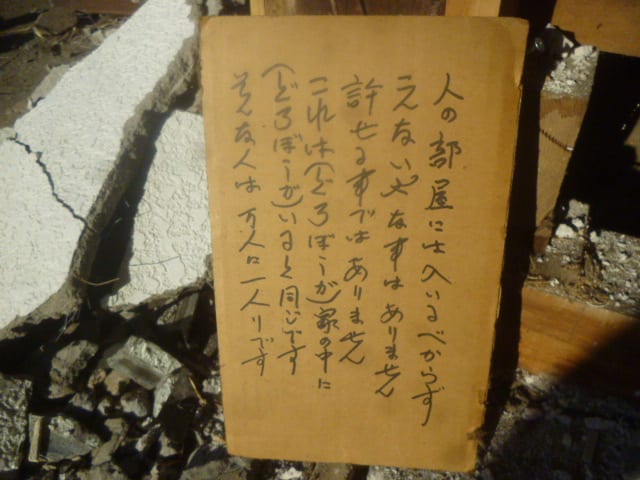 人の部屋には入いるべからず
こんないやな事はありません
許せる事ではありません
これは(どろぼうが)家の中に
(どろぼうが)いると同じです
そんな人は万人に一人りです